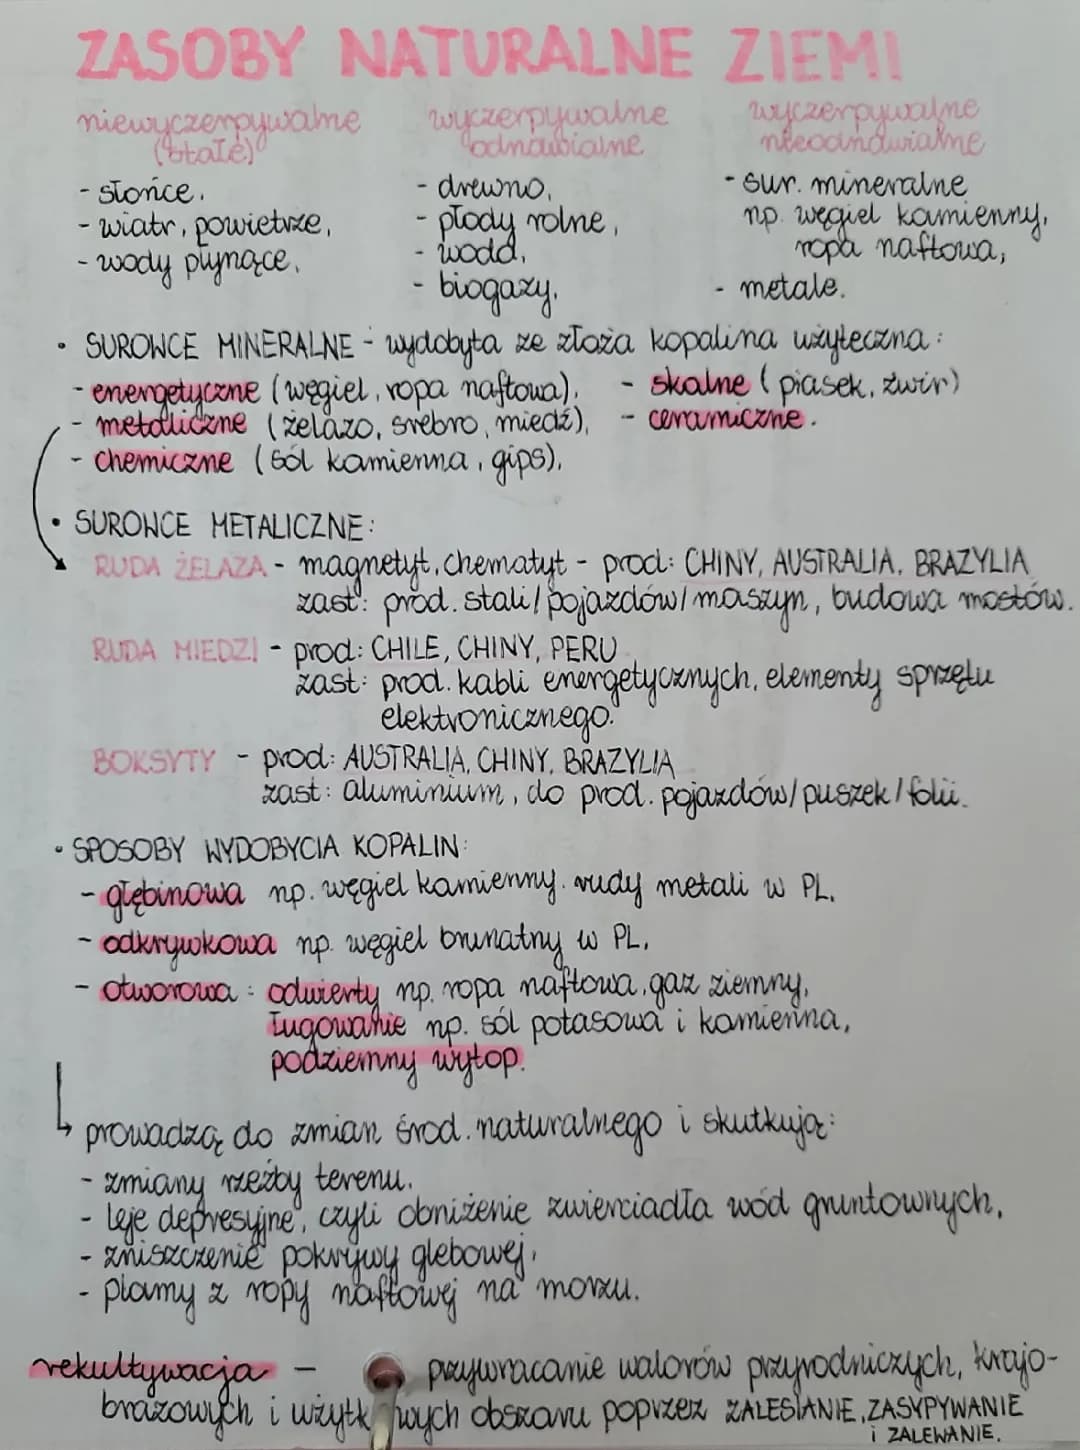 ZASOBY NATURALNE ZIEMI
niewyczerpywalne
(stałe)
- słońce,
- wiatr, powietrze,
- wody płynące,
wyczerpywalne
odnawialne
- drewno,
- płody rolne,
- woda,
- biogazy.
wyczerpywalne
nieodnawialne
- sur. mineralne
np. węgiel kamienny,
ropa naftowa,
- metale.
• SUROWCE MINERALNE - wydobyta ze złoża kopalina użyteczna:
- energetyczne (węgiel, ropa naftowa),
- metaliczne (żelazo, srebro, miedź),
- chemiczne (sól kamienna, gips),
- skalne (piasek, żwir)
- ceramiczne.
• SUROWCE METALICZNE:
RUDA ŻELAZA - magnetyt, chematyt - prod: CHINY, AUSTRALIA, BRAZYLIA
zast: prod. stali/pojazdów/maszyn, budowa mostów.
RUDA MIEDZI - prod: CHILE, CHINY, PERU
zast: prod. kabli energetycznych, elementy sprzętu
elektronicznego.
BOKSYTY - prod: AUSTRALIA, CHINY, BRAZYLIA
zast: aluminium, do prod. pojazdów/puszek/folii.
• SPOSOBY WYDOBYCIA KOPALIN:
- głębinowa np. węgiel kamienny, rudy metali w PL,
- odkrywkowa np. węgiel brunatny w PL,
- otworowa: odwierty np. ropa naftowa, gaz ziemny,
ługowanie np. sól potasowa i kamienna,
podziemny wytop.
prowadzą do zmian środ. naturalnego i skutkują:
- zmiany rzeźby terenu,
- leje depresyjne, czyli obniżenie zwierciadła wód gruntownych,
- zniszczenie pokrywy glebowej,
- plamy z ropy naftowej na morzu.
rekultywacja - przywracanie walorów przyrodniczych, krajo-
brazowych i obszaru poprzez ZALESIANIE, ZASYPYWANIE
i ZALEWANIE.